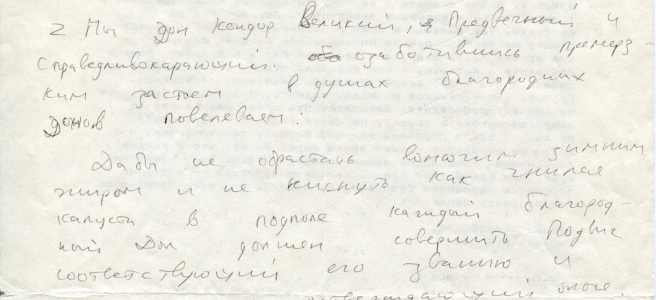 2 Мы дон Кондор Великий, Предвечный и
Справедливокарающий. озаботившись премерз-
ким застоем в душах благородных
донов повелеваем:
Дабы не обрастать вонючим зимним
жиром и не киснуть как гнилая
капуста в подполе каждый благород-
ный Дон должен совершить Подвиг
соответствующий его званию и